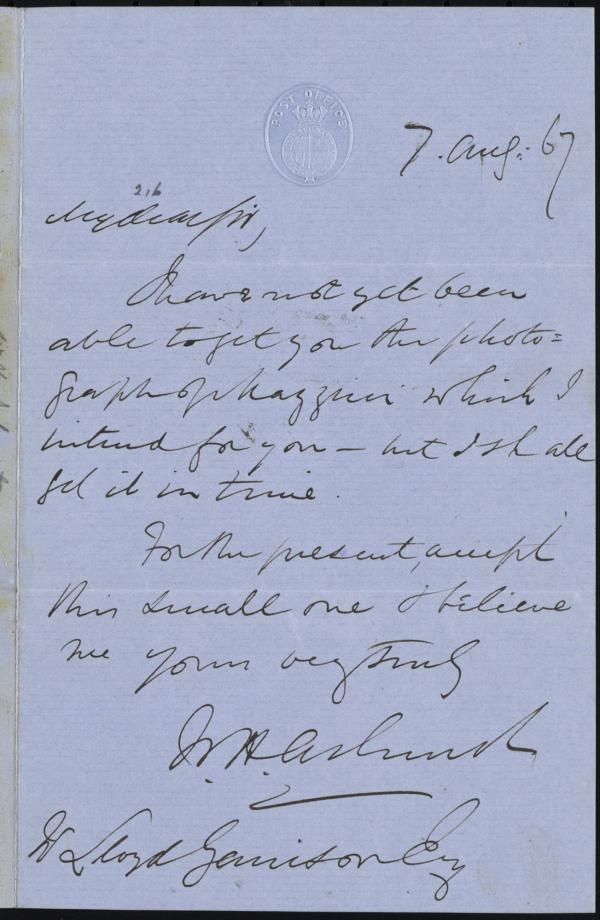 POST OFFICE
7. Aug: 67
216
My dear Sir,
I have not yet been
able to get you the photo=
graph of Mazzini which I
intend for you – but I shall
get it in time.
For the present, accept
this small one & believe
me yours very truly
W. H. Ashurst
W Lloyd Garrison Esq